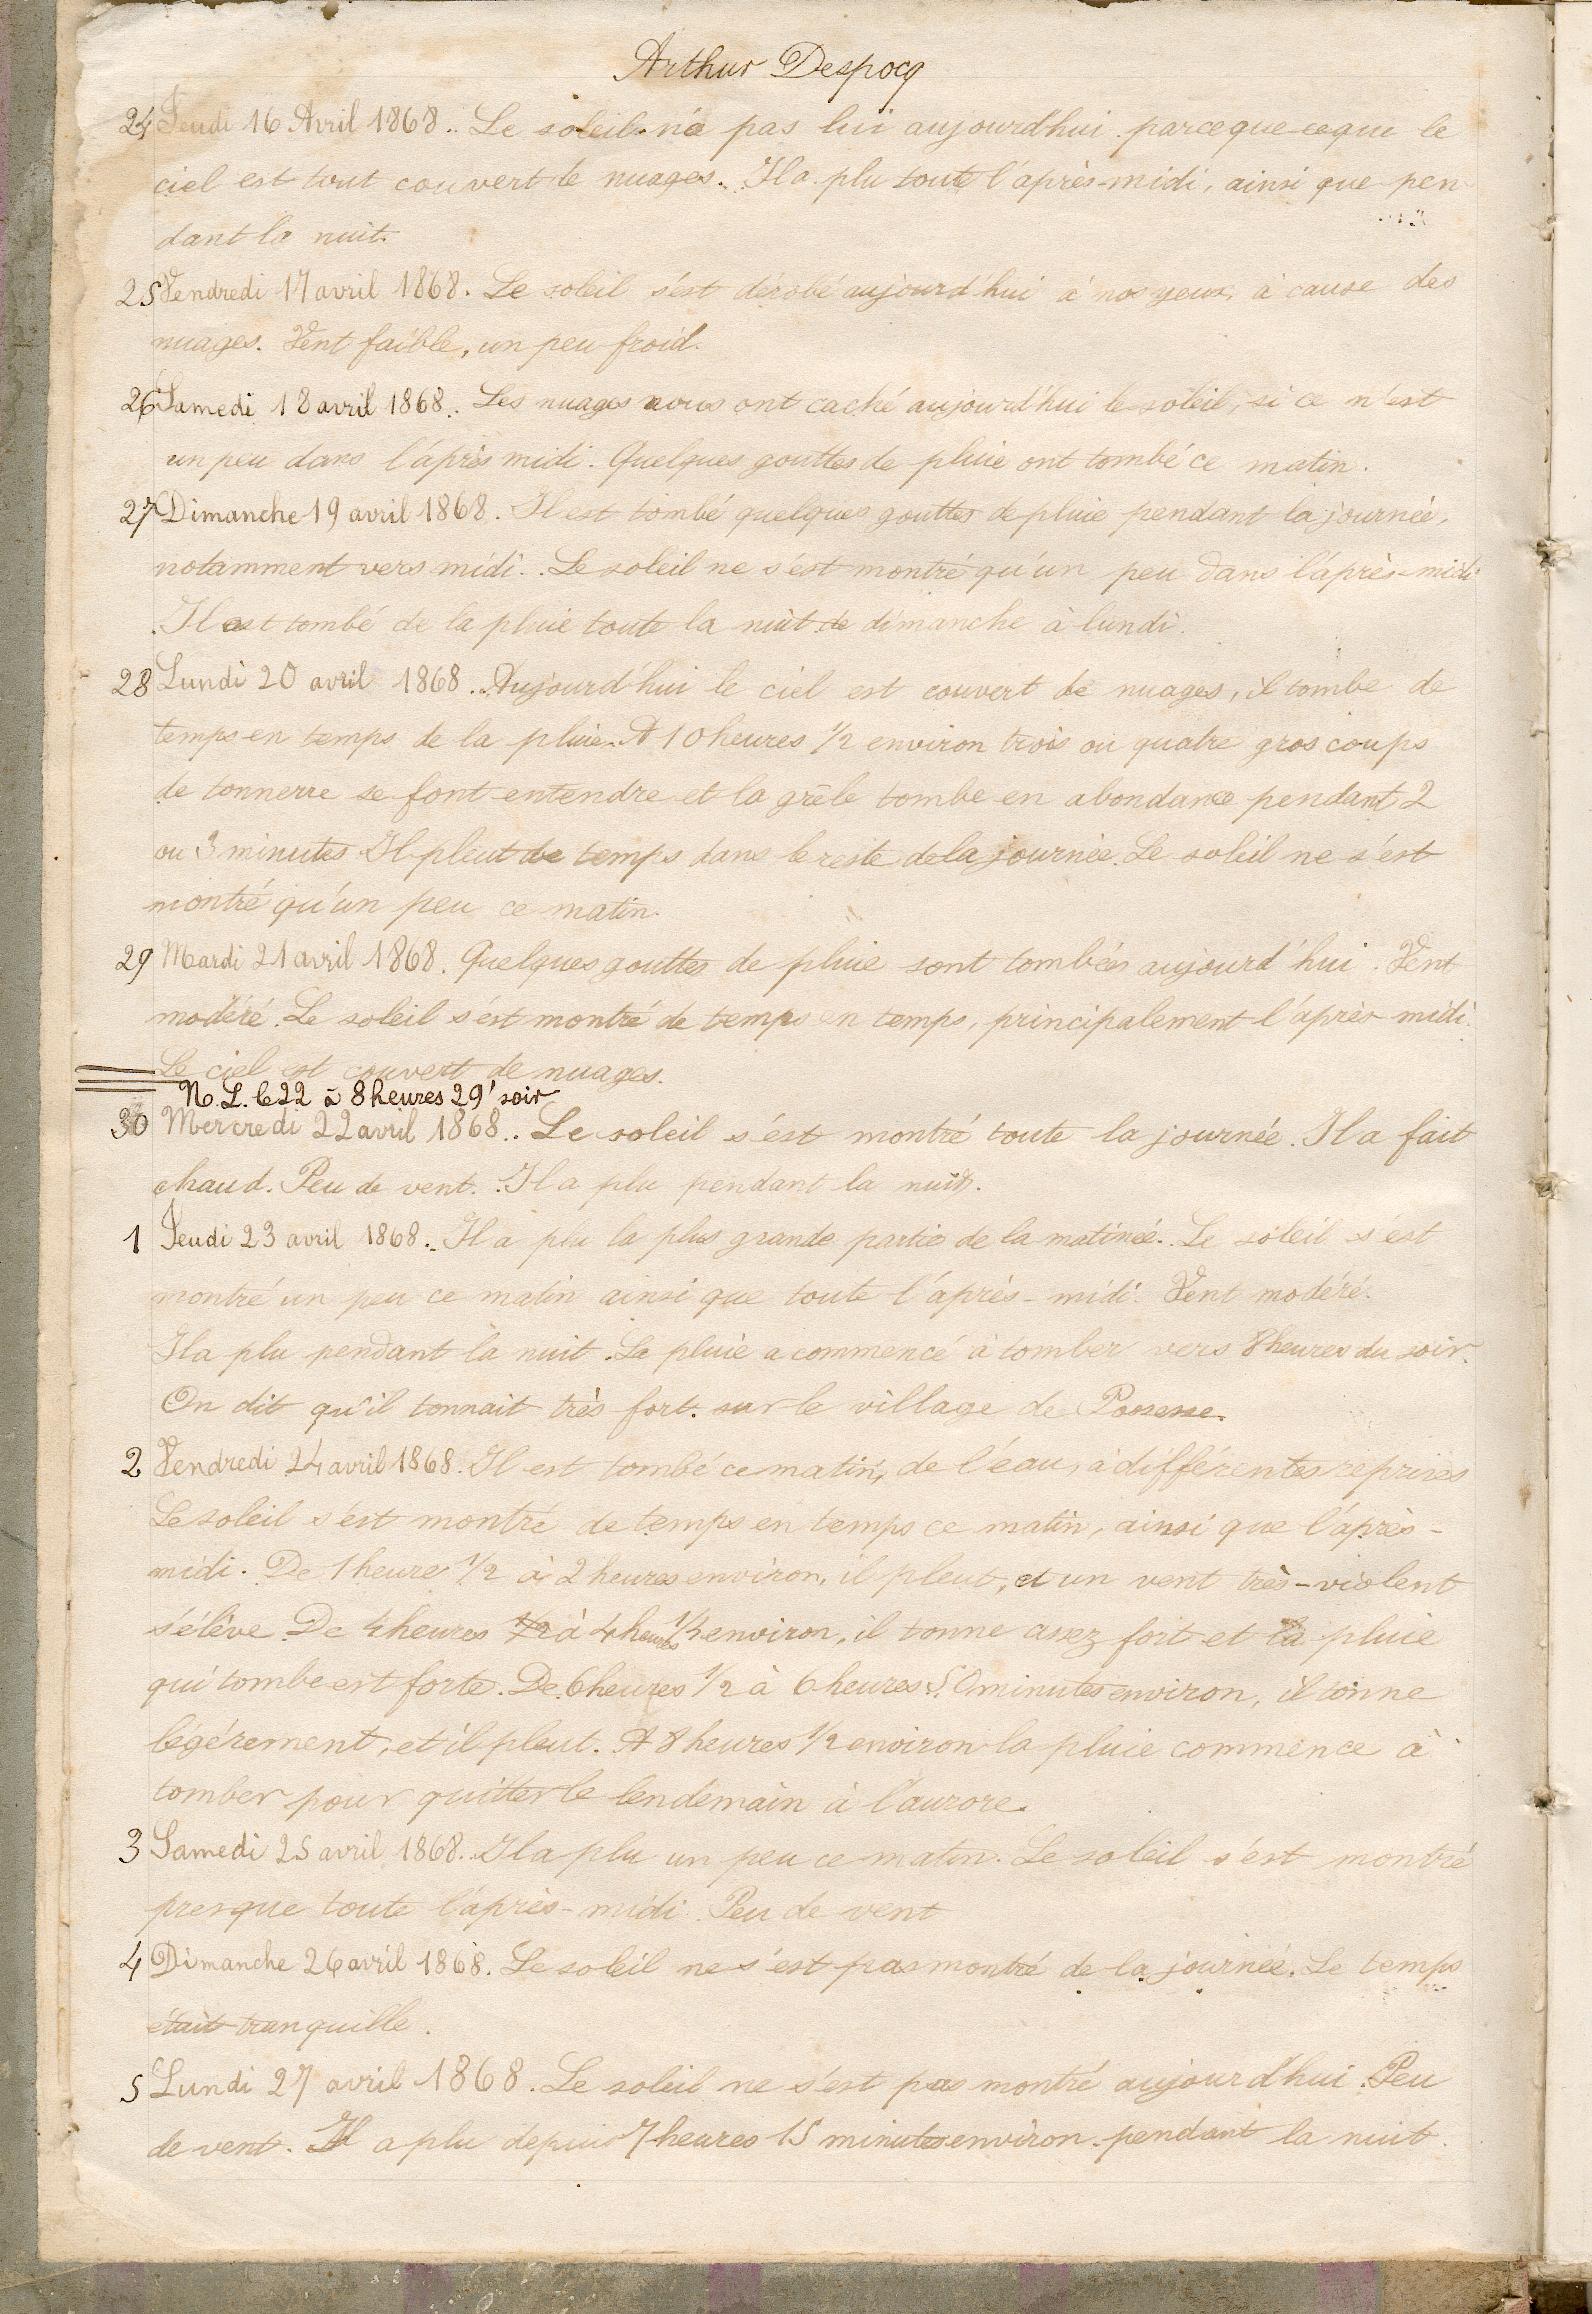 Arthur Despocq
24 Jeudi 16 Avril 1868.. Le soleil n'a pas lui aujourd'hui parceque ceque le
ciel est tout couvert de nuages. Il a plu toute l'après-midi, ainsi que pen
dant la nuit.
25 Vendredi 17 avril 1868. Le soleil s'est dérobé aujourd'hui à nos yeux, à cause des
nuages. Vent faible, un peu froid.
26 Samedi 18 avril 1868.. Les nuages nous ont caché aujourd'hui le soleil, si ce n'est
un peu dans l'après midi. Quelques gouttes de pluie ont tombé ce matin.
27 Dimanche 19 avril 1868. Il est tombé quelques gouttes de pluie pendant la journée,
notamment vers midi.. Le soleil ne s'est montré qu'un peu dans l'après-midi
Il est tombé de la pluie toute la nuit de dimanche à lundi.
28 Lundi 20 avril 1868.. Aujourd'hui le ciel est couvert de nuages, il tombe de
temps en temps de la pluie. A 10 heures 1/2 environ trois ou quatre gros coups
de tonnerre se font entendre et la grêle tombe en abondance pendant 2
ou 3 minutes Il pleut de temps dans le reste de la journée. Le soleil ne s'est
montré qu'un peu ce matin.
29 Mardi 21 avril 1868. Quelques gouttes de pluie sont tombées aujourd'hui. Vent
modéré. Le soleil s'est montré de temps en temps, principalement l'après midi.
Le ciel est couvert de nuages.
N. L. le 22 à 8 heures 29' soir
30 Mercredi 22 avril 1868.. Le soleil s'est montré toute la journée. Il a fait
chaud. Peu de vent. Il a plu pendant la nuit.
1 Jeudi 23 avril 1868.. Il a plu la plus grande partie de la matinée. Le soleil s'est
montré un peu ce matin ainsi que toute l'après-midi. Vent modéré.
Il a plu pendant la nuit. La pluie a commencé à tomber vers 8 heures du soir.
On dit qu'il tonnait très fort. sur le village de Possesse.
2 Vendredi 24 avril 1868. Il est tombé ce matin, de l'eau, à différentes reprises
Le soleil s'est montré de temps en temps ce matin, ainsi que l'après-
midi. De 1 heure 1/2 à 2 heures environ, il pleut, et un vent très-violent
s'élève. De 4 heures à 4 heures 1/2 environ, il tonne assez fort et la pluie
qui tombe est forte. De 6 heures 1/2 à 6 heures 50 minutes environ, il tonne
légèrement, et il pleut. A 8 heures 1/2 environ la pluie commence à
tomber pour quitter le lendemain à l'aurore.
3 Samedi 25 avril 1868. Il a plu un peu ce matin. Le soleil s'est montré
presque toute l'après-midi. Peu de vent
4 Dimanche 26 avril 1868. Le soleil ne s'est pas montré de la journée. Le temps
était tranquille.
5 Lundi 27 avril 1868. Le soleil ne s'est pas montré aujourd'hui. Peu
de vent. Il a plu depuis 7 heures 15 minutes environ. pendant la nuit.